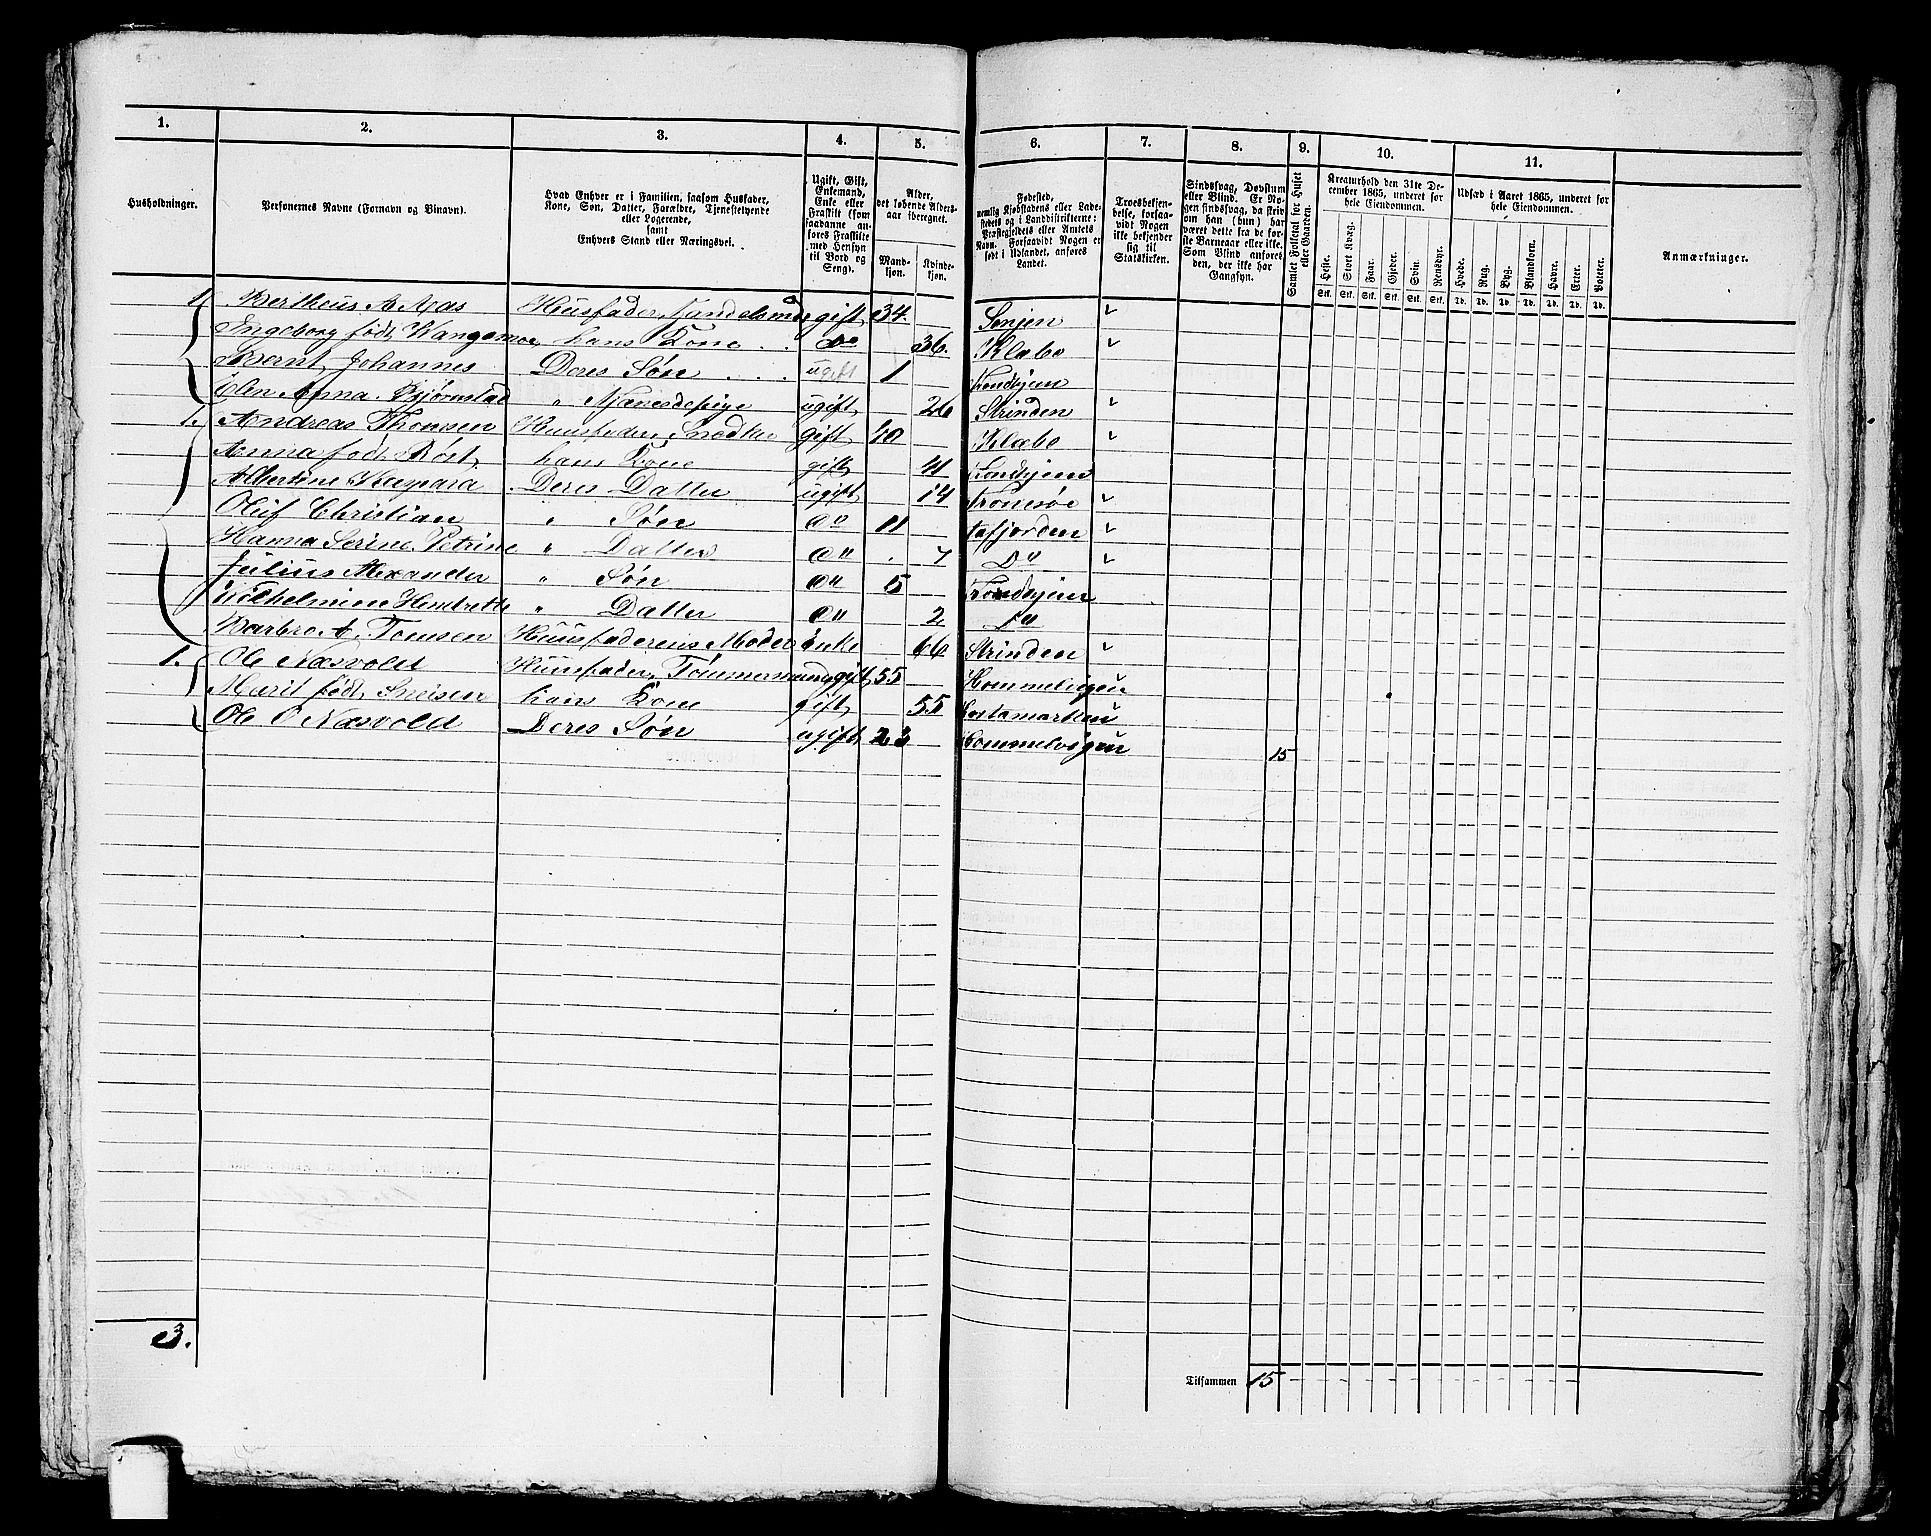 1. 2. 3. 4. 5. 6. 7. 8. 9. 10. 11.
Husholdninger.
Personernes Navne (Fornavn og Binavn).
Hvad Enhver er i Familien, saasom Husfader,
Kone, Søn, Datter, Forældre, Tjenestetyende
eller Logerende,
samt
Enhvers Stand eller Næringsvei.
Ugift, Gift,
Enkemand,
Enke eller
Fraskilt (som
saadanne an-
føres Fraskilte
med Hensyn
til Bord og
Seng).
Alder,
det løbende Alders-
aar iberegnet.
Mand-
kjøn.
Kvinde-
kjøn.
Fødested,
nemlig Kjøbstadens eller Lade-
stedets og i Landdistrikterne:
Præstegjeldets eller Amtets
Navn. Forsaavidt Nogen er
født i Udlandet, anføres
Landet.
Troesbekjen-
delse, forsaa-
vidt Nogen
ikke bekjender
sig til
Statskirken.
Sindssvag, Døvstum
eller Blind. Er No-
gen sindssvag, da skriv
om han (hun) har
været dette fra de før-
ste Barneaar eller ikke.
Som Blind anføres
den, der ikke har
Gangsyn.
Samlet Folketal for Huset
eller Gaarden.
Kreaturhold den 31te De-
cember 1865, underet for
hele Eiendommen.
Heste. Stort Kvæg. Faar. Gjeder. Svin. Rensdyr.
Stk. Stk. Stk. Stk. Stk. Stk.
Udsæd i Aaret 1865, underet for
hele Eiendommen.
Hvede. Rug. Byg. Blandkorn. Havre. Erter. Poteter.
Td. Td. Td. Td. Td. Td. Td.
Anmærkninger.
1. Bertheus A. Aas Huusfader, Handelsmd gift 34. Senjen
Ingeborg født Wangsmoe hans Kone do 36. Klæbo
Bernt Johannes Deres Søn ugift 1 Trondhjem
Elen Anna Bjørnstad " Tjenestepige ugift 26 Strinden
1. Andreas Thomsen Huusfader, Snedker gift 40 Klæbo
Anna født Röst hans Kone gift 41 Trondhjem
Albertine Kaspara Deres Datter ugift 14 Tromsøe
Oluf Christian " Søn do 11 Kafjorden
Hanna Serine Petrine " Datter do 7 Do
Julius Alexander " Søn do 5 Trondhjem
Wilhelmine Hendrette " Datter do 2 Do
Barbro A. Tomsen Huusfaderens Moder enke 66 Strinden
1. Ole Næsvold Huusfader, Tömmermand gift 55 Hommelvigen
Marit født Sneisen hans Kone gift 55
Ole O Næsvold Deres Søn ugift 23 Hommelvigen 15
3.
Tilsammen 15